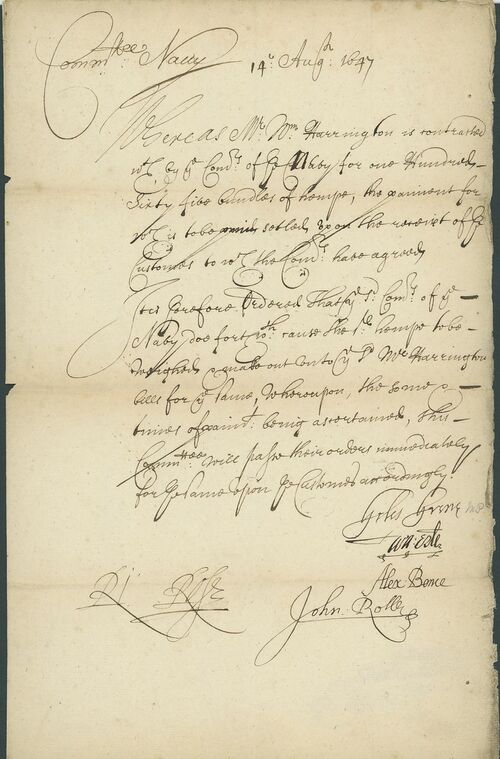 Comm.ttee Navy 14.o Aug.st 1647
Whereas Mr. Wm. Harrington is contracted
wth. by ye Com.rs of ye Navy for one Hundred
Sixty five bundles of hempe, the paiment for
wch. is to be settled upon the receipt of ye
Customes to wch. the Com.rs have agreed
It is therefore Ordered That ye sd. Com.rs of ye
Navy doe forthwth. cause the sd. hempe to be
weighed & make out unto ye sd. Mr. Harrington
bills for ye same, Whereupon, the some &
times of paimt. being ascertained, this
Comm.ttee will passe their orders immediately
for ye same upon ye Customes accordingly.
Gyles Grene
Alex Bence
John Rolle